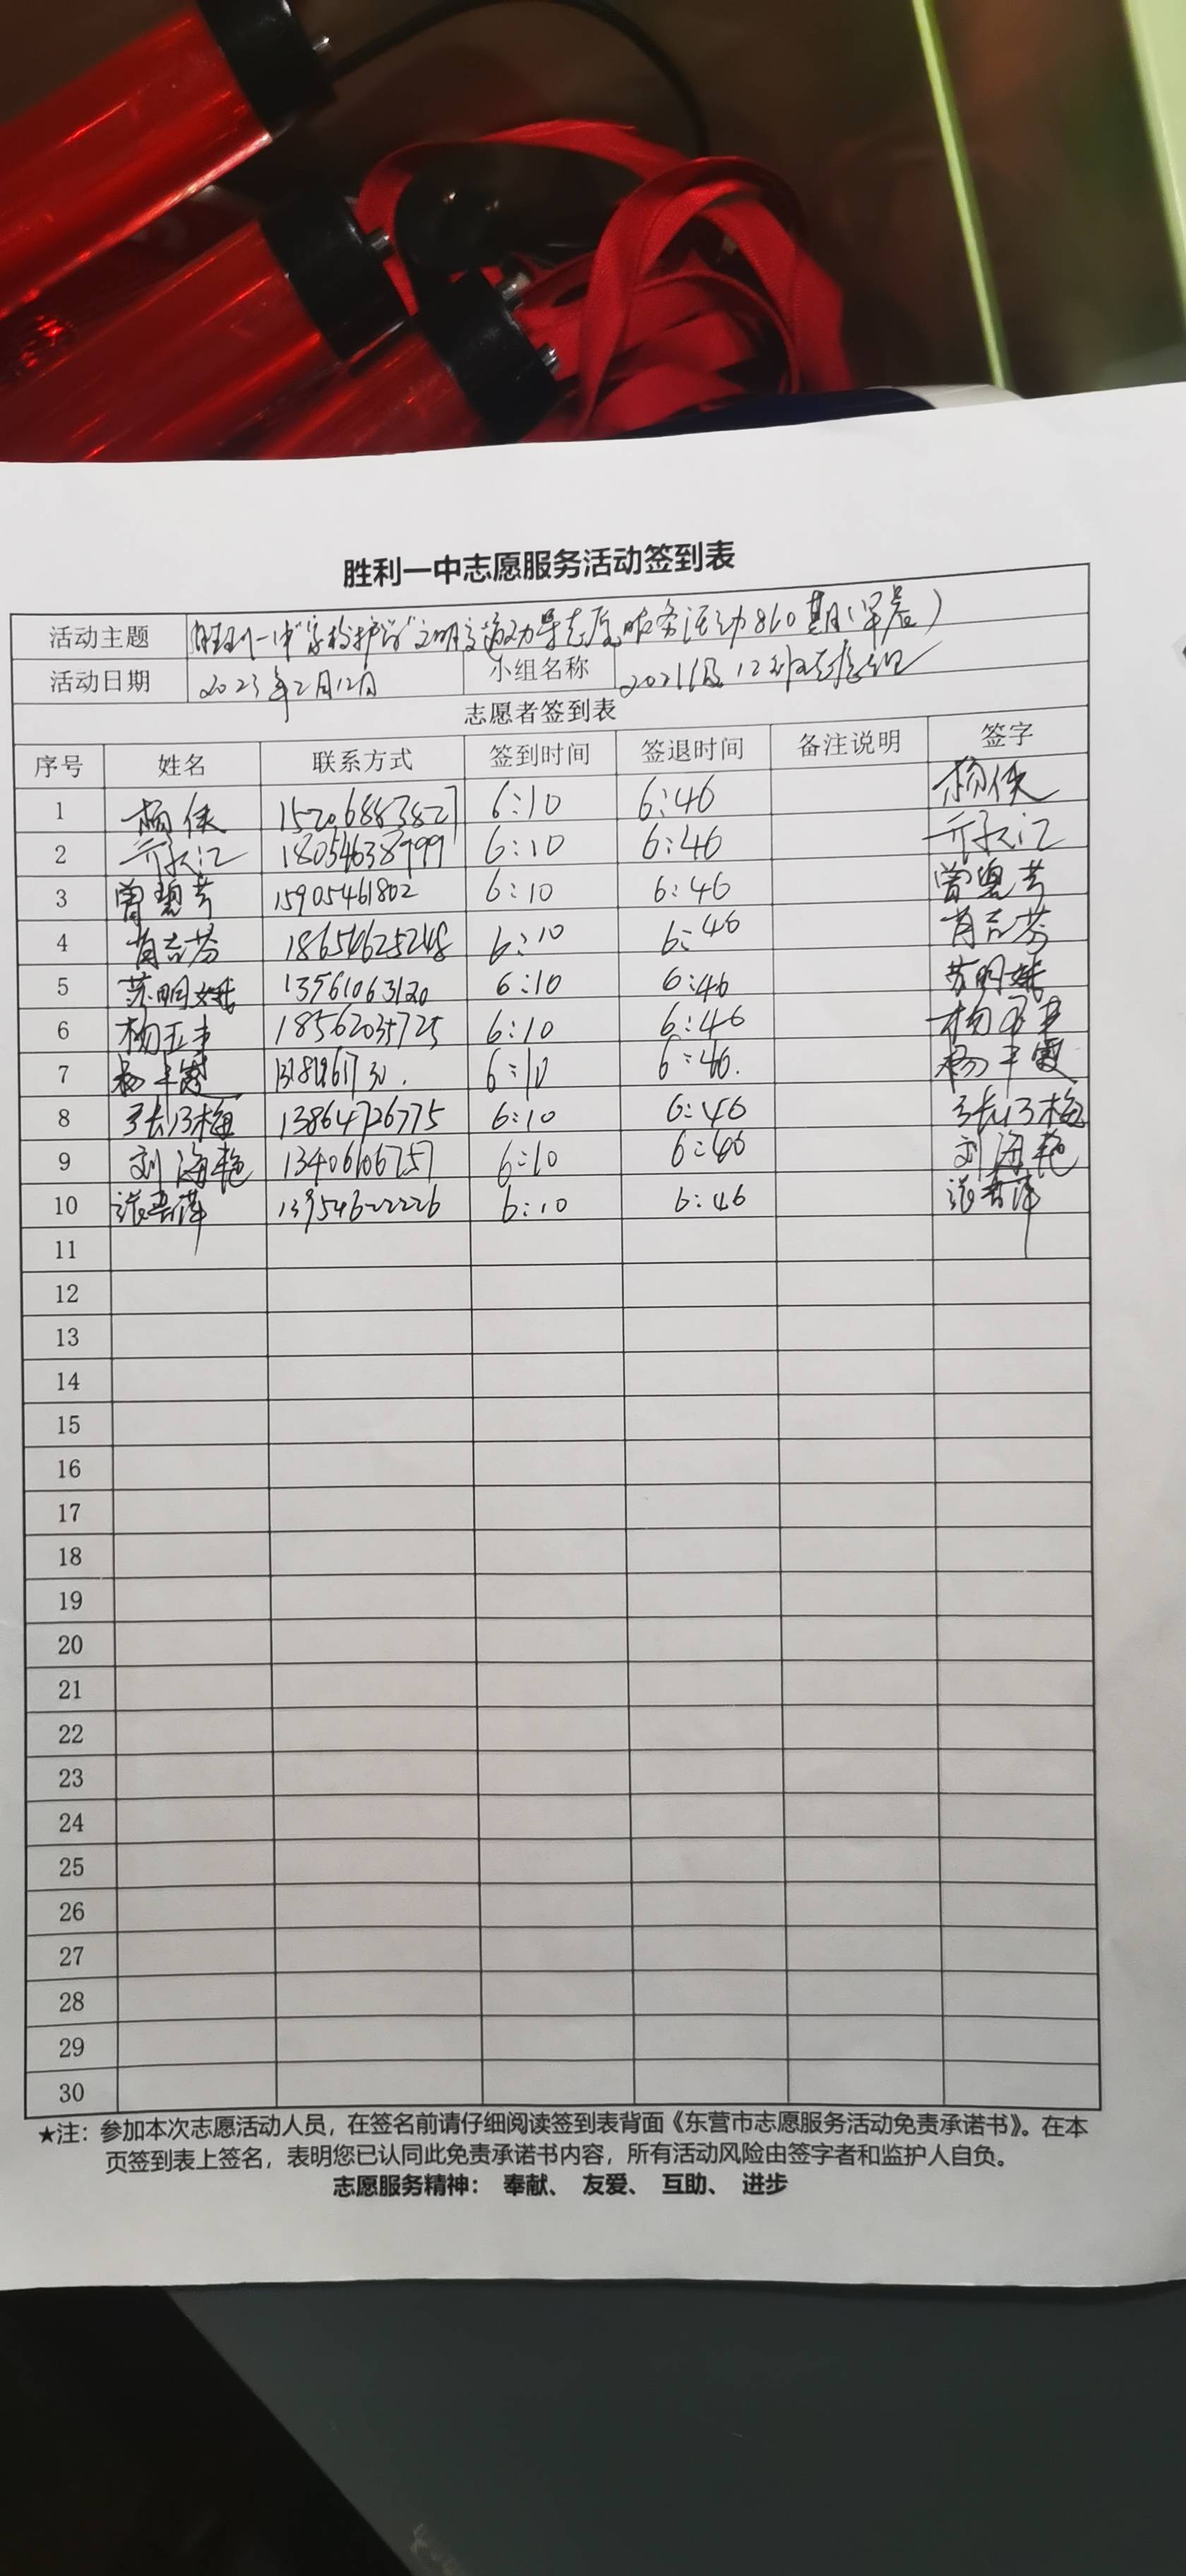 胜利一中志愿服务活动签到表
活动主题 胜利一中"家校护学"文明交通劝导志愿服务活动860期(早岗)
活动日期 2023年2月12日 小组名称 2021级12班
志愿者签到表
序号 姓名 联系方式 签到时间 签退时间 备注说明 签字
1 杨侠 15206883827 6:10 6:46 杨侠
2 亓永江 18054638999 6:10 6:46 亓永江
3 曾碧芳 15905461802 6:10 6:46 曾碧芳
4 肖志芬 18654625248 6:10 6:46 肖志芬
5 苏明娥 13561063120 6:10 6:46 苏明娥
6 杨玉丰 18562035725 6:10 6:46
7 杨平霞 6:10 6:46. 杨平霞
8 张江梅 13864726775 6:10 6:46 张江梅
9 刘海艳 13406106757 6:10 6:46 刘海艳
10 13954622226 6:10 6:46
11
12
13
14
15
16
17
18
19
20
21
22
23
24
25
26
27
28
29
30
★注:参加本次志愿活动人员,在签名前请仔细阅读签到表背面《东营市志愿服务活动免责承诺书》。在本
页签到表上签名,表明您已认同此免责承诺书内容,所有活动风险由签字者和监护人自负。
志愿服务精神: 奉献、 友爱、 互助、 进步